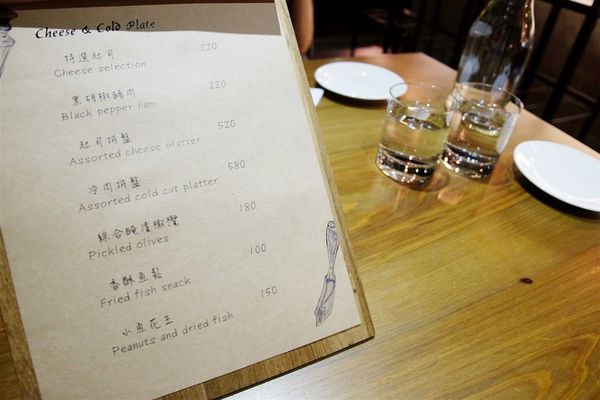 Cheese & Cold Plate
特選起司 220
Cheese selection
黑胡椒豬肉 220
Black pepper ham
起司拼盤 520
Assorted cheese platter
冷肉拼盤 580
Assorted cold cut platter
綜合醃漬橄欖 180
Pickled olives
香酥魚鬆 100
Fried fish snack
小魚花生 150
Peanuts and dried fish